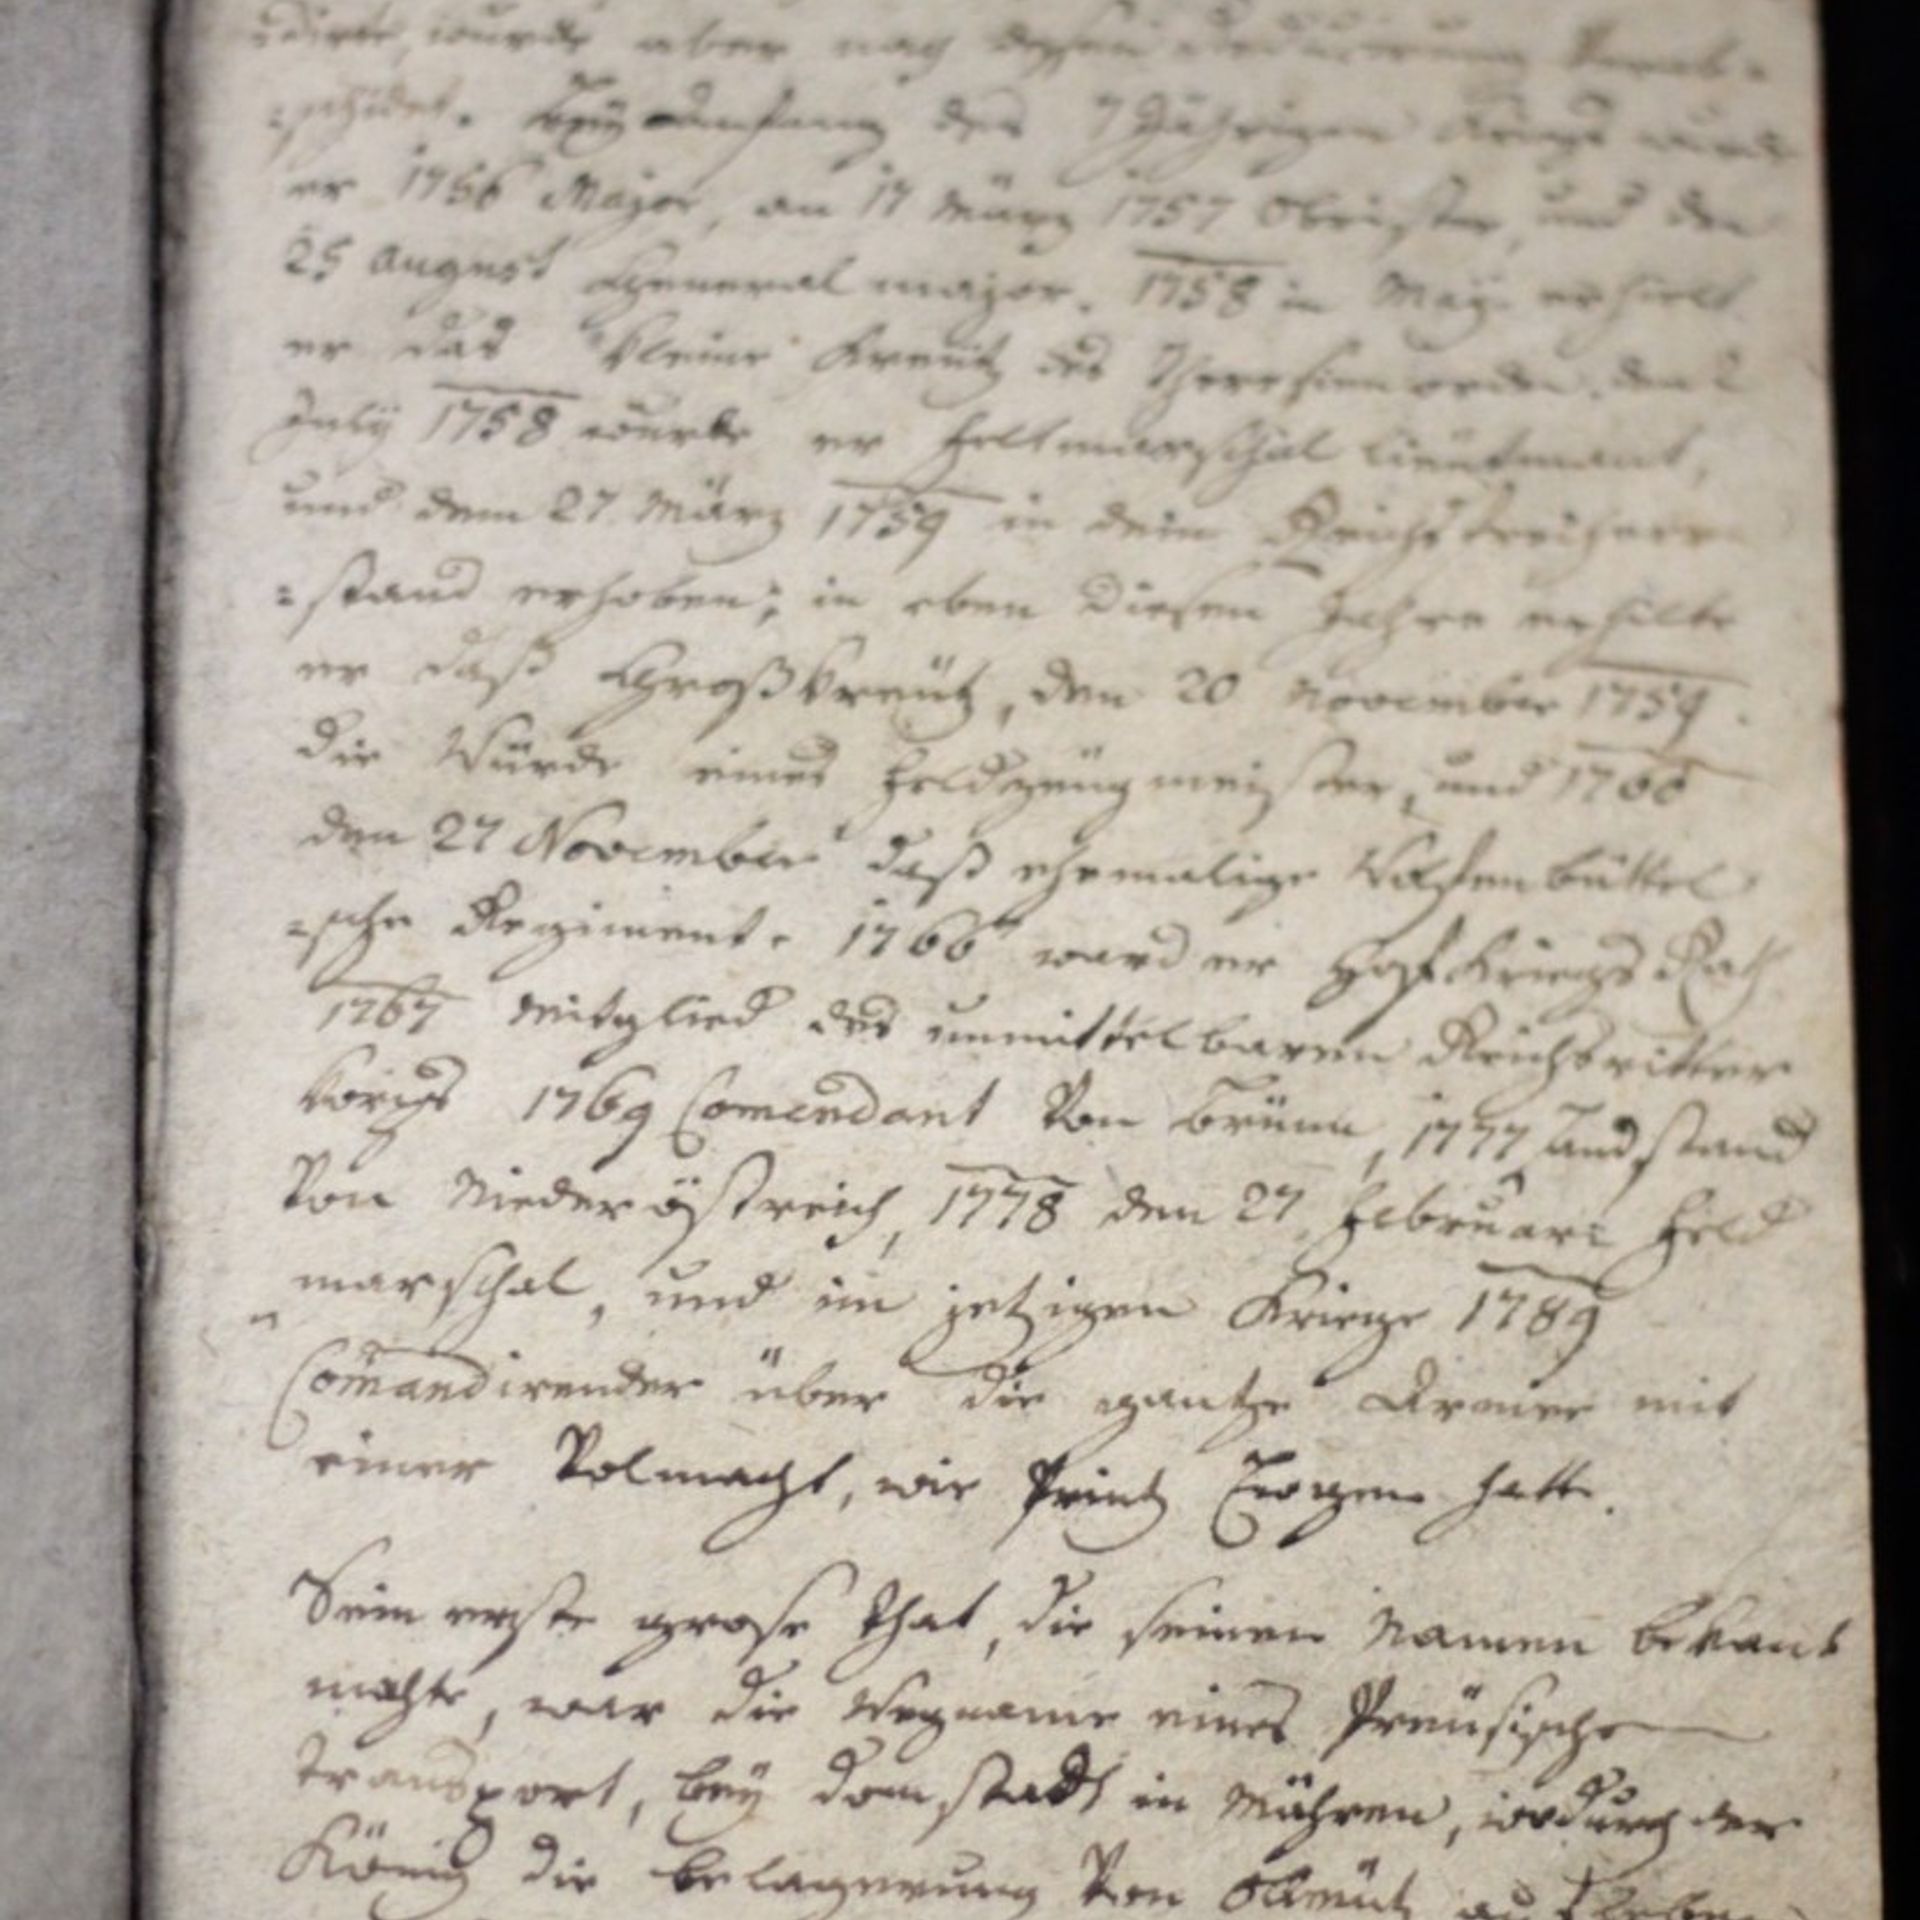 wurde aber nach dessen
:schidet. Bey Anfang des 7 Jährigen Kriegs wurde
er 1756 Major, an 17 März 1757 Obrister, und den
25 August General major. 1758 in May erhielt
er das kleine Kreutz des Theresien orden. den
July 1758 wurde er Feltmarschal lieutnant,
und dem 27 März 1759 in dem Reichsfreiherrn
:stand erhoben; in eben diesen Jahre erhilte
er daß Großkreutz, den 20 November 1759.
die Würde eines Feldzeugmeister, und 1760
den 27 November daß ehemalige Wolfenbüttel
:sche Regiment. 1766 ward er Hof Kriegs Rath
1767 Mitglied des unmittelbaren Reichsritter
1769 Comendant Von Brünn, 1777 Landstand
Von Niederöstreich, 1778 den 27 Februari Feld
marschal, und im jetzigen Kriege 1789
Comandirender über die gantze Armee mit
einer Volmacht, wie Printz Eugen hatte.
Sein erste grose That, die seinen Namen bekant
machte, war die Wegname eines Preüsische
transport, bey Domstadt in Mähren, wodurch der
König die belagerung Von Ollmütz